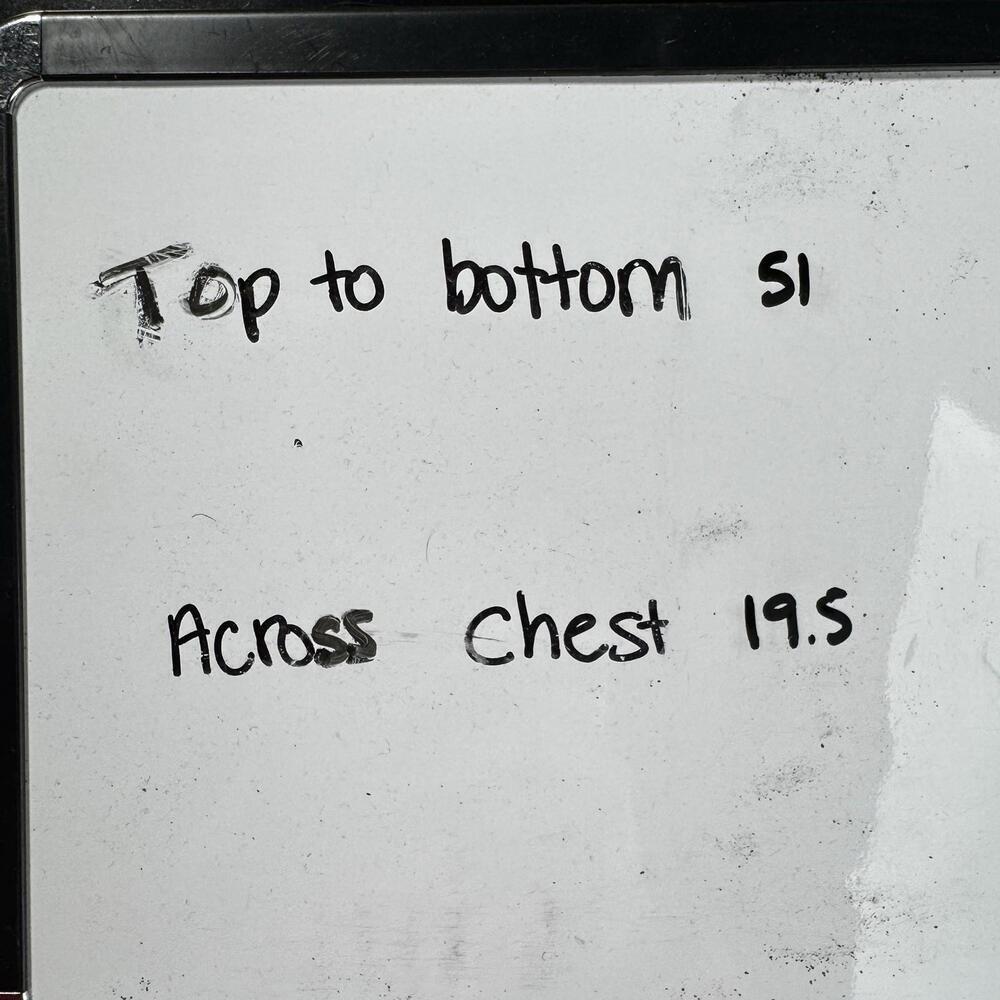 Top to bottom 51
Across Chest 19.5